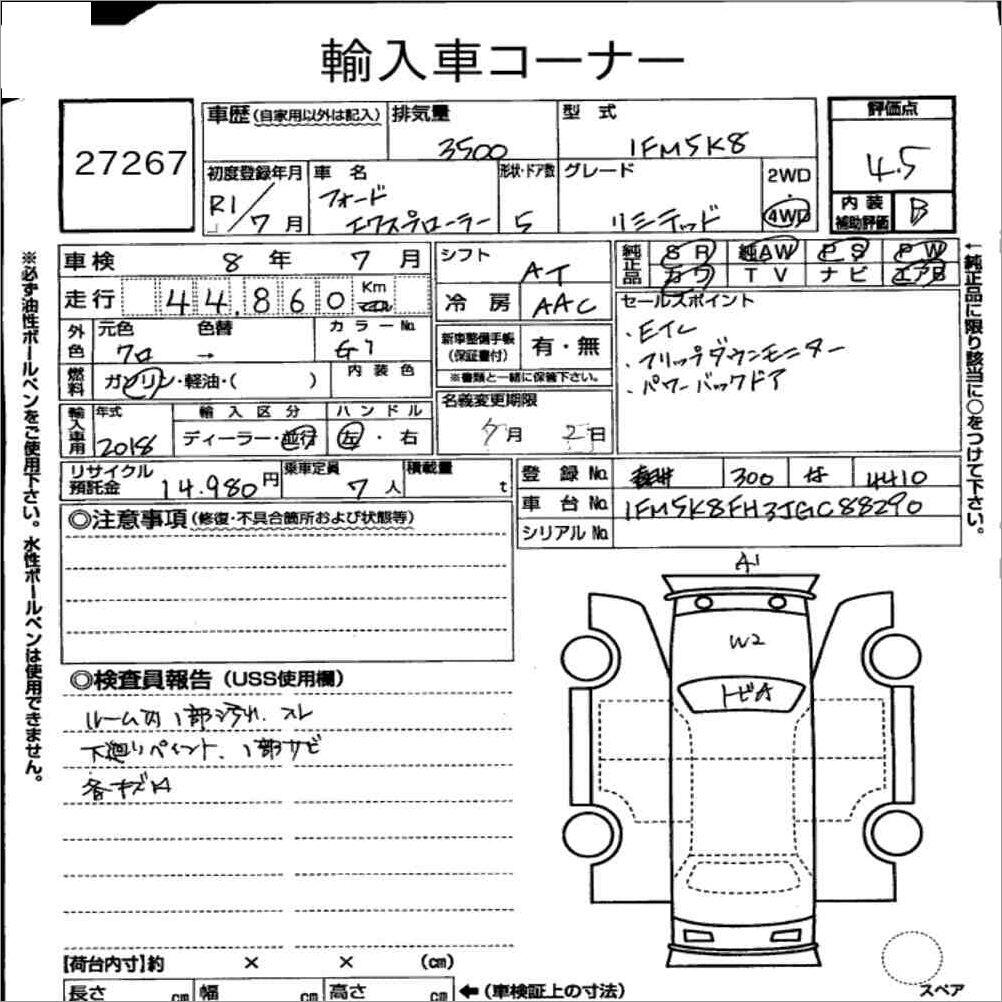 輸入車コーナー
27267
車歴(自家用以外は記入)
排気量
3500
型 式
1FM5K8
評価点
4.5
初度登録年月
R1/7月
車 名
フォード
エクスプローラー
形状・ドア数
5
グレード
リミテッド
2WD
4WD
内 装
補助評価
B
車検 8年 7月
シフト
AT
純正品
SR 純AW PS PW
カワ TV ナビ エアB
走行 44,860 Km マイル
冷 房 AAC
セールスポイント
・Eイレ
・フリップダウンモニター
・パワーバックドア
外色
元色 色替 カラーNo.
クロ → G1
新車整備手帳
(保証書付)
有・無
※書類と一緒に保管下さい。
燃料
ガソリン・軽油・( )
内 装 色
名義変更期限
月 2日
輸入車用
年式 輸入区分 ハンドル
2018 ディーラー・並行 左・右
リサイクル
預託金 14,980円
乗車定員
7人
積載量
t
登 録 No. 300 4410
車 台 No. 1FM5K8FH3JGC88290
シリアル No.
◎注意事項(修復・不具合箇所および状態等)
◎検査員報告(USS使用欄)
ルーム内1部汚れ、スレ
下廻りペイント、1部サビ
各キズ凹
A1
W2
トビA
【荷台内寸】約 × × (cm)
長さ cm 幅 cm 高さ cm ←(車検証上の寸法)
スペア
※必ず油性ボールペンをご使用下さい。水性ボールペンは使用できません。
←純正品に限り該当に○をつけて下さい。